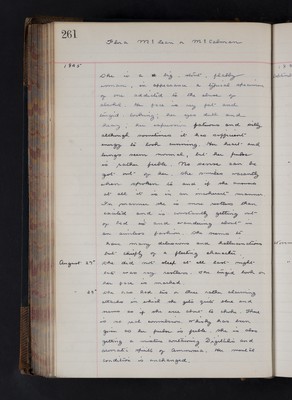 261
Flora McLean or McCalman
1885
She is a big, stout, flabby
woman, in appearance a typical specimen
of one addicted to the abuse of
alcohol. Her face is very red and
, her eyes dull and
heavy, her expression fatuous and silly
although sometimes it has sufficient
energy to look cunning. Her heart and
lungs seem normal, but her pulse
is rather feeble. No sense can be
got out of her. She smiles vacantly
when spoken to and if she answers
at all it is in an incoherent manner.
In manner she is more restless than
excited and is constantly getting out
of bed and wandering about in
an aimless fashion. She seems to
have many delusions and hallucinations
but chiefly of a fleeting character.
August 27th She did not sleep at all last night
and was very restless. The look in
her face is marked.
She has had two or three rather alarming
attacks in which she gets quite blue and
seems as if she were about to choke. There
is no whisky has been
given as her pulse is feeble. She is also
getting a mixture containing Digitalis and
aromatic spirits of Ammonia. Her mental
condition is unchanged.